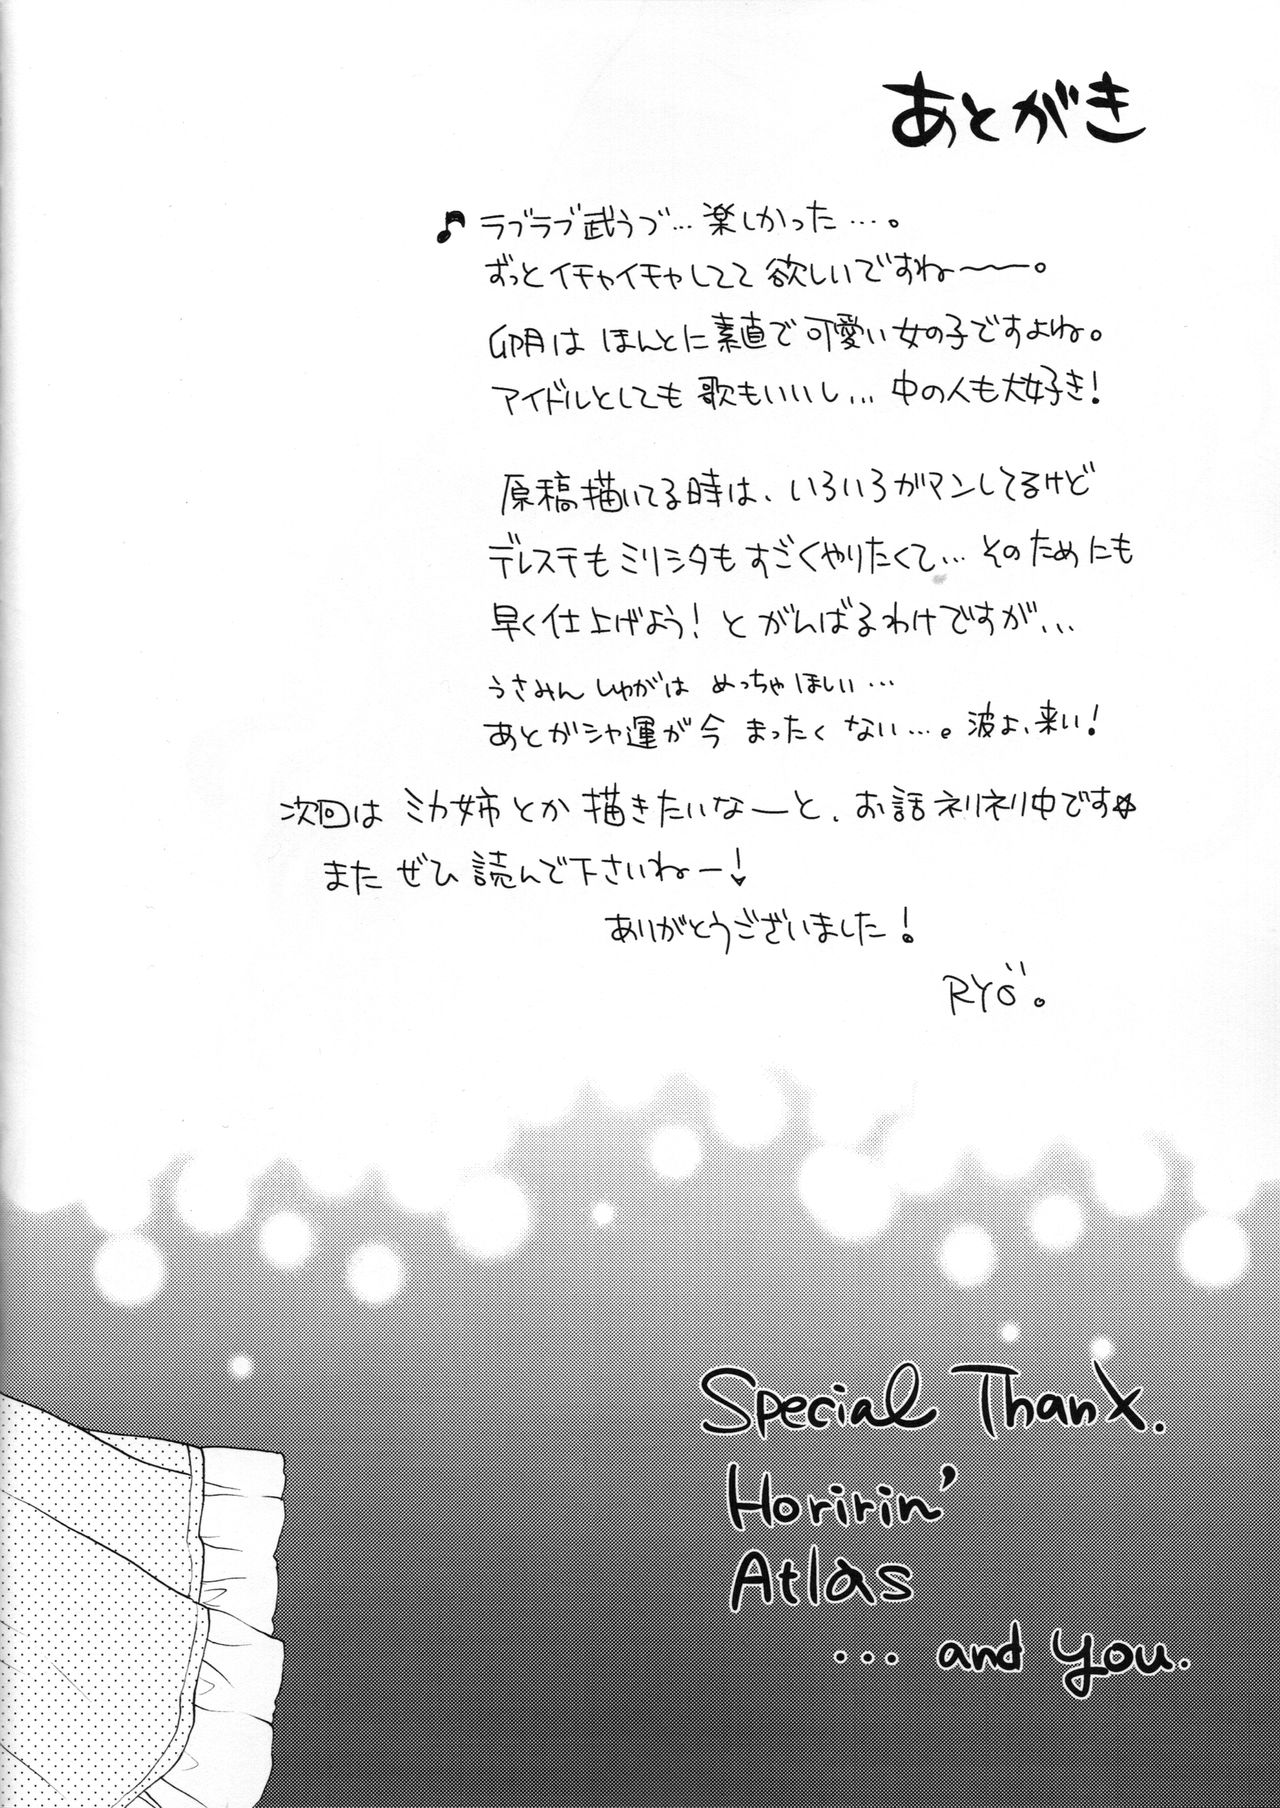 あとがき
♪ ラブラブ武うづ…楽しかった…。
ずっとイチャイチャしてて欲しいですね~~。
卯月は ほんとに素直で可愛い女の子ですよね。
アイドルとしても 歌もいいし… 中の人も大好き!
原稿描いてる時は、いろいろガマンしてるけど
デレステもミリシタもすごくやりたくて… そのためにも
早く仕上げよう! と がんばるわけですが…
うさみん しゅがは めっちゃほしい…
あとガシャ運が今 まったくない…。波よ、来い!
次回は ミカ姉とか 描きたいなーと、お話ネリネリ中です☆
また ぜひ 読んで下さいねー!
ありがとうございました!
RYÖ。
Special ThanX.
Horirin'
Atlas
... and you.